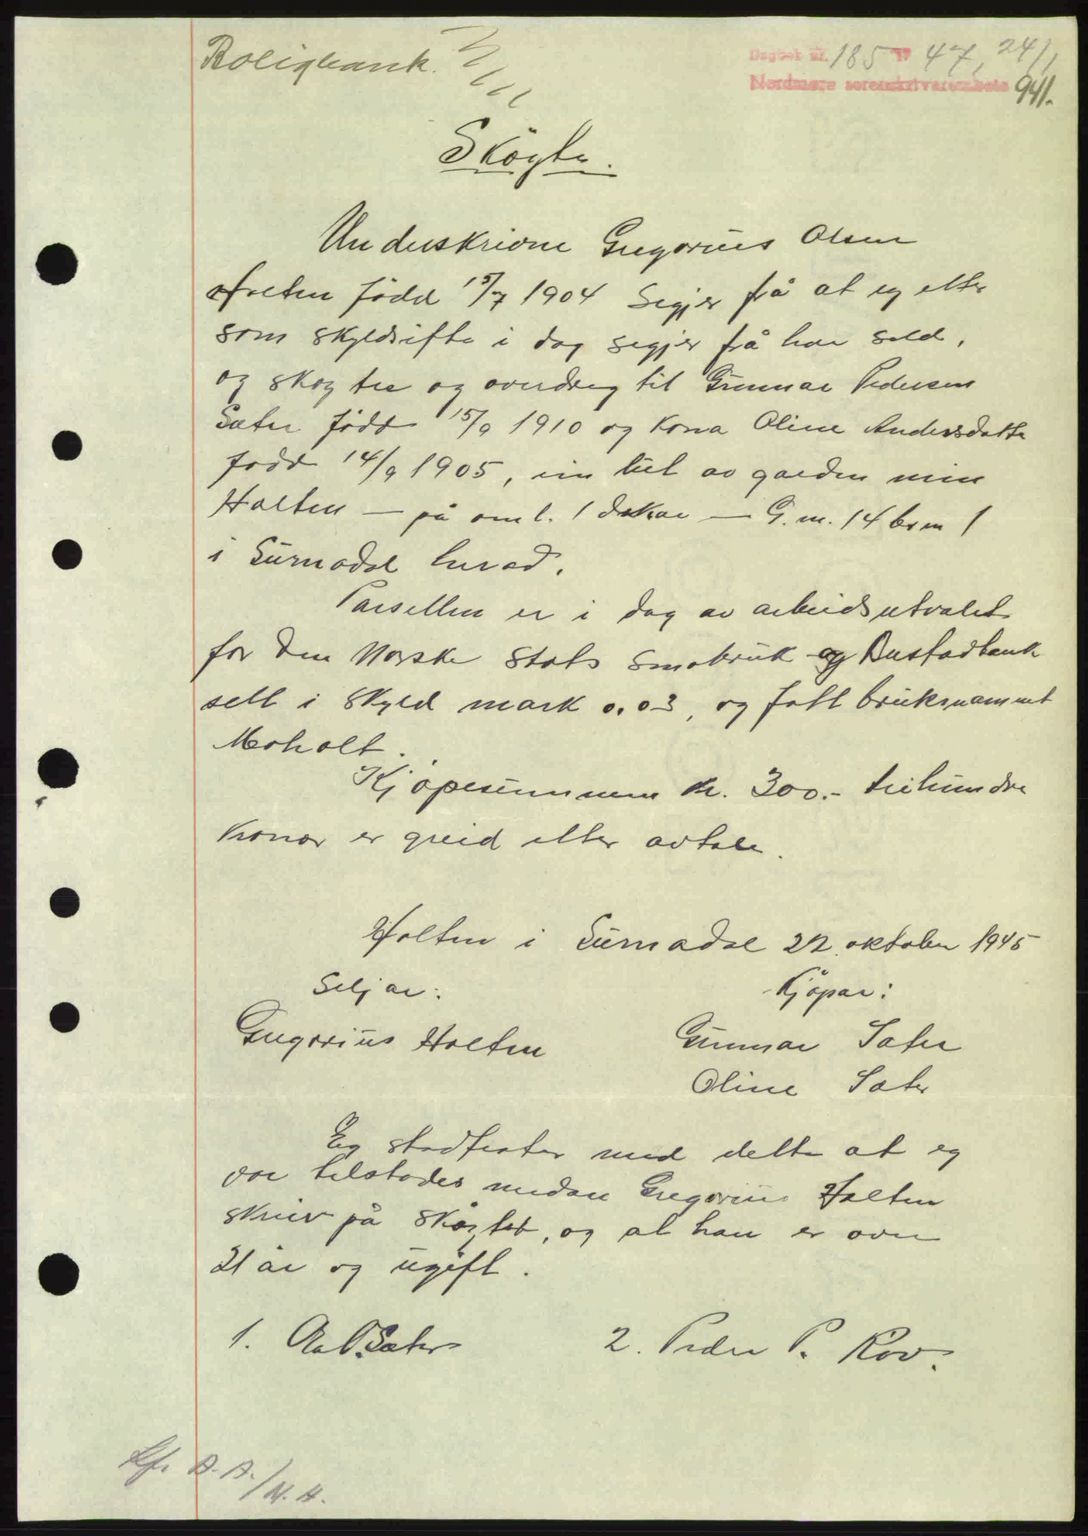 Boligbank.
Dagbok nr. 185 19 47, 24/1
Nordmøre sorenskriverembete 941.
Skøyte.
Underskrivne Gregorius Olsen
Holten fødd 15/7 1904 segjer frå at eg etter
som skyldskifte i dag segjer frå har seld,
og skøyter og overdreg til Gunnar Pedersen
Sæter fødd 15/9 1910 og kona Oline Andersdotter
fødd 14/9 1905, ein lut av garden min
Holten — på oml. 1 dekar — G.m. 14 br.m 1
i Surnadal herad.
Parsellen er i dag av arbeidsutvalet
for Den Norske Stats Småbruk og Bustadbank
sett i skyld mark 0.03, og fått bruksnamnet
Moholt.
Kjøpesummen kr. 300.- trihundre
kronor er greid etter avtale.
Holten i Surnadal 22. oktober 1945
Seljar: Kjøpar:
Gregorius Holten Gunnar Sæter
Oline Sæter
Eg stadfester med dette at eg
var tilstades medan Gregorius Holten
skreiv på skøytet, og at han er over
21 år og ugift.
1. Ola P. Sæter 2. Peder P. Kov.
Lfr. A. A. / N. H.